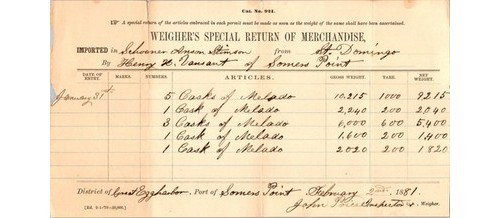 Cat. No. 921.
A special return of the articles embraced in each permit must be made as soon as the weight of the same shall have been ascertained.
WEIGHER'S SPECIAL RETURN OF MERCHANDISE,
IMPORTED in Schooner Anson Stimson from St. Domingo
By Henry H. Vansant of Somers Point
DATE OF ENTRY. MARKS. NUMBERS. ARTICLES. GROSS WEIGHT. TARE. NET WEIGHT.
January 31st 5 Casks of Melado 10,215 1000 9215
1 Cask of Melado 2,240 200 2,040
3 Casks of Melado 6,000 600 5,400
1 Cask of Melado 1,600 200 1,400
1 Cask of Melado 2020 200 1820
District of Great Eggharbor, Port of Somers Point February 1881.
John Price Inspector, Weigher.